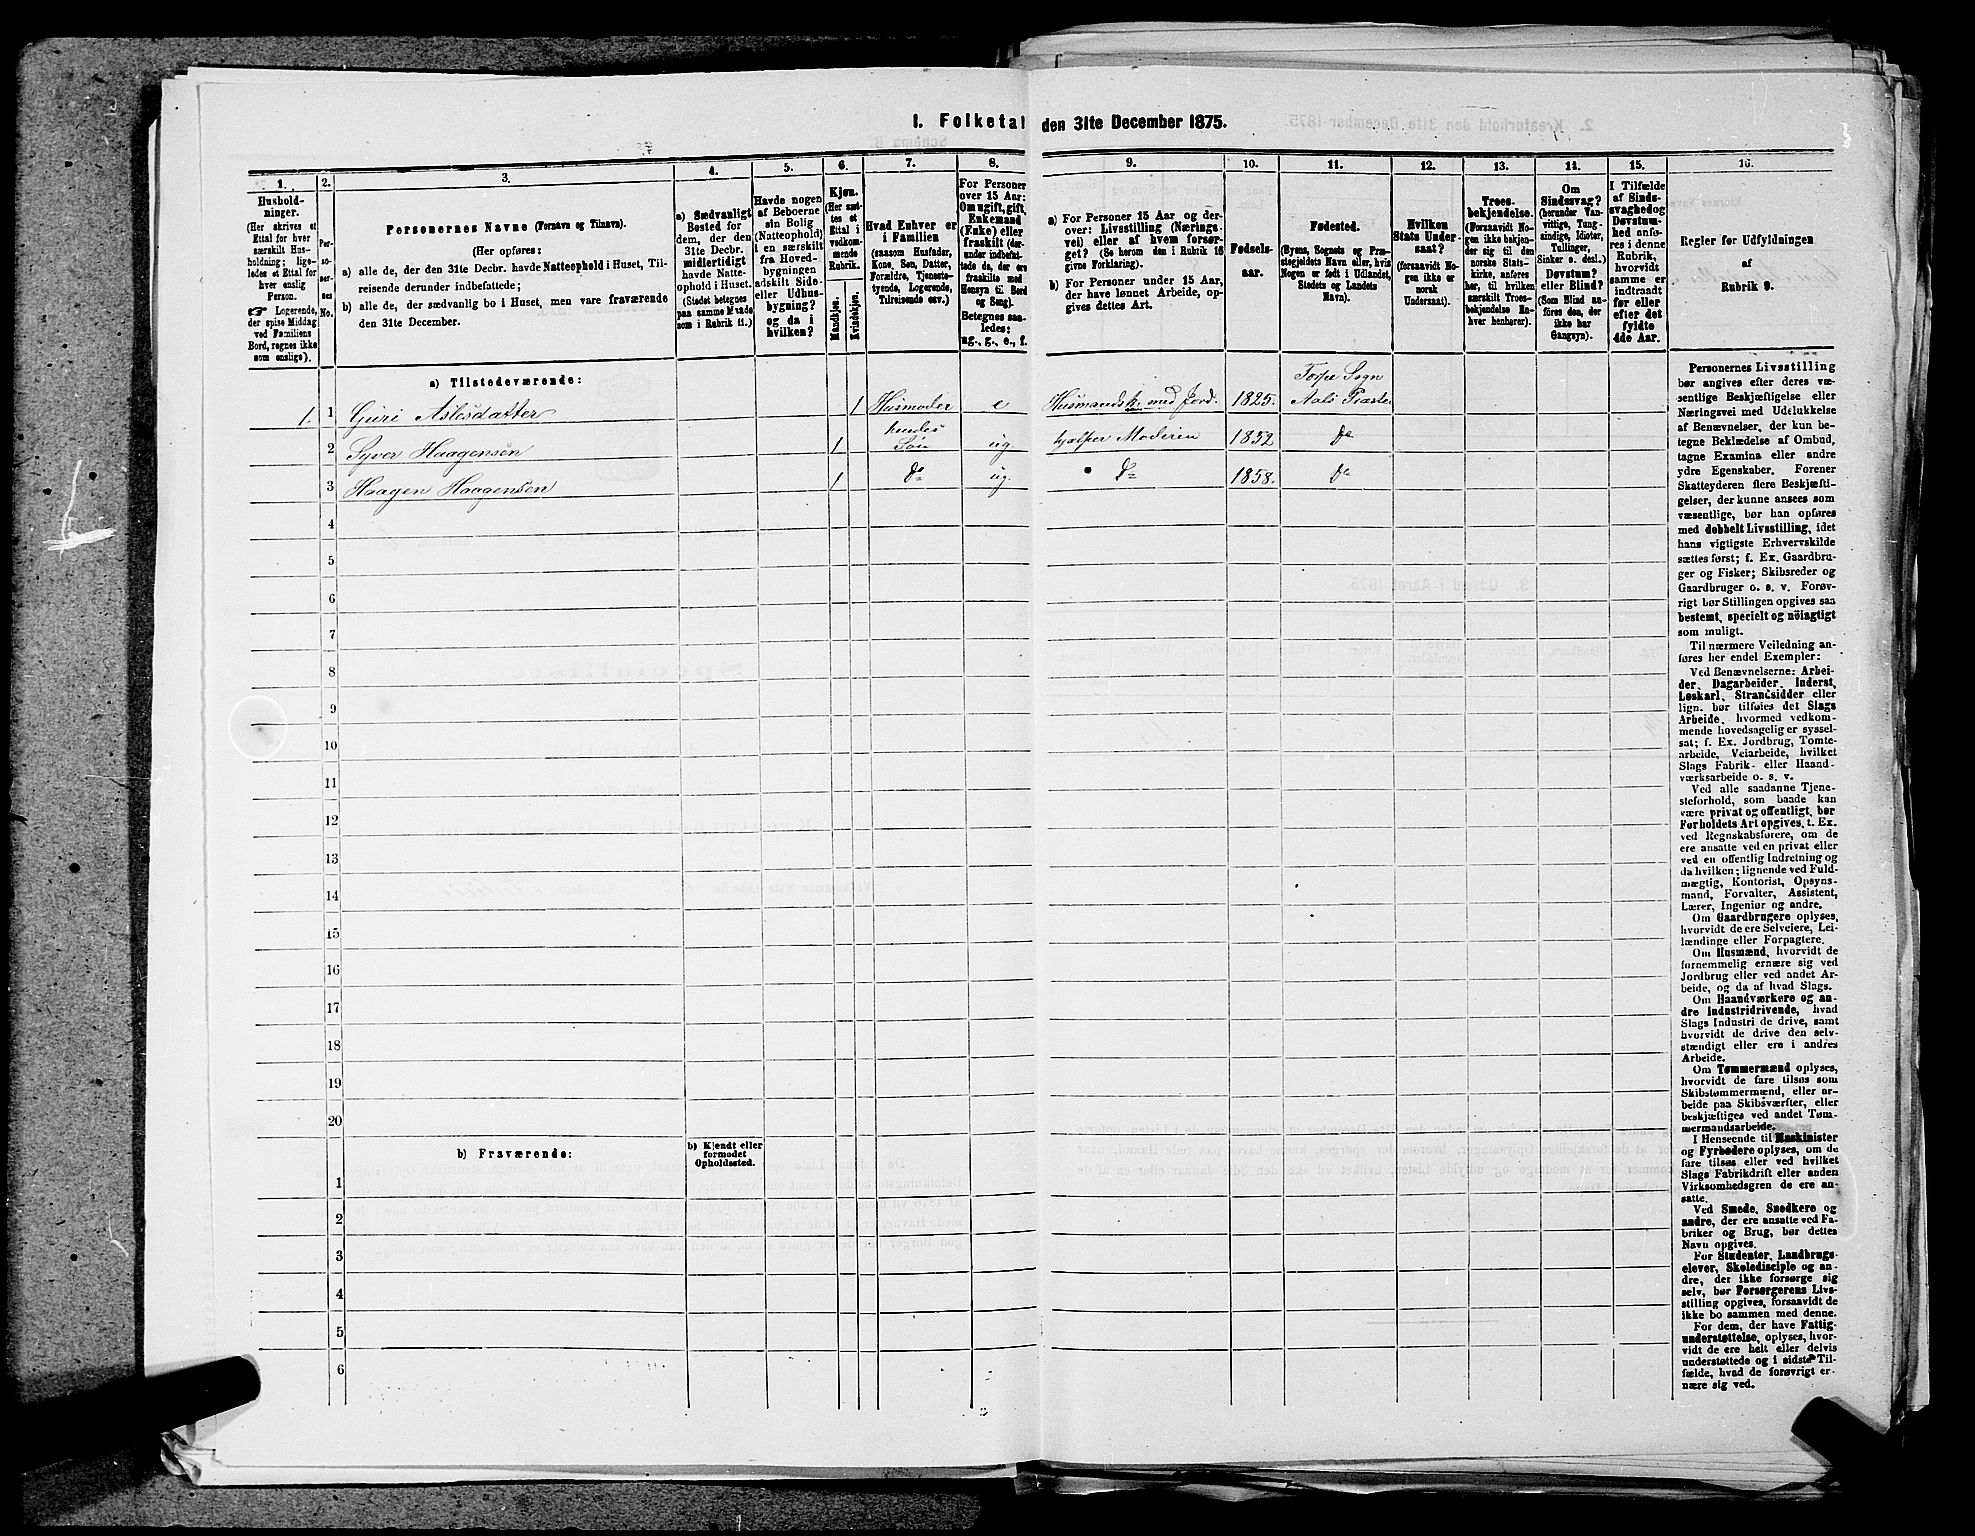 1. Folketal den 31te December 1875.
1.
Hushold-
ninger.
(Her skrives et
Ettal for hver
særskilt Hus-
holdning; lige-
ledes et Ettal for
hver enslig
Person.
☞ Logerende,
der spise Middag
ved Familiens
Bord, regnes ikke
som enslige).
2.
Per-
so-
ner-
nes
No.
3.
Personernes Navne (Fornavn og Tilnavn).
(Her opføres:
a) alle de, der den 31te Decbr. havde Natteophold i Huset, Til-
reisende derunder indbefattede;
b) alle de, der sædvanlig bo i Huset, men vare fraværende
den 31te December.
4.
a) Sædvanligt
Bosted for
dem, der den
31te Decbr.
midlertidigt
havde Natte-
ophold i Huset.
(Stedet betegnes
paa samme Maade
som i Rubrik 11.)
5.
Havde nogen
af Beboerne
sin Bolig
(Natteophold)
i en særskilt
fra Hoved-
bygningen
adskilt Side-
eller Udhus-
bygning?
og da i
hvilken?
6.
Kjøn.
(Her sæt-
tes et
Ettal i
vedkom-
mende
Rubrik.
Mandkjøn.
Kvindekjøn.
7.
Hvad Enhver er
i Familien
(saasom Husfader,
Kone, Søn, Datter,
Forældre, Tjeneste-
tyende, Logerende,
Tilreisende osv.)
8.
For Personer
over 15 Aar:
Om ugift, gift,
Enkemand
(Enke) eller
fraskilt (der-
under indbefat-
tede da, der ere
fraskilte med
Hensyn til Bord
og Seng).
Betegnes saa-
ledes:
ug., g., e., f.
9.
a) For Personer 15 Aar og der-
over: Livsstilling (Nærings-
vei) eller af hvem forsør-
get? (Se herom den i Rubrik 16
givne Forklaring).
b) For Personer under 15 Aar,
der have lønnet Arbeide, op-
gives dettes Art.
10.
Fødsels-
aar.
11.
Fødested.
(Byens, Sognets og Præ-
stegjeldets Navn eller, hvis
Nogen er født i Udlandet,
Stedets og Landets
Navn).
12.
Hvilken
Stats Under-
saat?
(forsaavidt No-
gen ikke er
norsk
Undersaat).
13.
Troes-
bekjendelse.
(Forsaavidt No-
gen ikke bekjen-
der sig til den
norske Stats-
kirke, anføres
her, til hvilken
særskilt Troes-
bekjendelse En-
hver henhører).
14.
Om
Sindssvag?
(herunder Van-
vittige, Tung-
sindige, Idioter,
Tullinger,
Sinker o. desl.)
Døvstum?
eller Blind?
(Som Blind an-
føres den, der
ikke har
Gangsyn).
15.
I Tilfælde
af Sinds-
svaghed og
Døvstum-
hed anfø-
res i denne
Rubrik,
hvorvidt
samme er
indtraadt
før eller
efter det
fyldte
4de Aar.
16.
Regler før Udfyldningen
af
Rubrik 9.
a) Tilstedeværende:
1. 1 Guri Aslesdatter 1 Husmoder e Husmandsk. med Jord. 1825. Torpe Sogn Aals Præste.
2 Syver Haagensøn 1 hendes Søn ug. hjælper Moderen 1852 Do
3 Haagen Haagensen 1 Do ug. Do 1858. Do
4
5
6
7
8
9
10
11
12
13
14
15
16
17
18
19
20
b) Fraværende:
b) Kjendt eller
formodet
Opholdssted.
1
2
3
4
5
6
Personernes Livsstilling
bør angives efter deres væ-
sentlige Beskjæftigelse eller
Næringsvei med Udelukkelse
af Benævnelser, der kun be-
tegne Beklædelse af Ombud,
tagne Examina eller andre
ydre Egenskaber. Forener
Skatteyderen flere Beskjæfti-
gelser, der kunne ansees som
væsentlige, bør han opføres
med dobbelt Livsstilling, idet
hans vigtigste Erhvervskilde
sættes først; f. Ex. Gaardbru-
ger og Fisker; Skibsreder og
Gaardbruger o. s. v. Forøv-
rigt bør Stillingen opgives saa
bestemt, specielt og nöiagtigt
som muligt.
Til nærmere Veiledning an-
føres her endel Exempler:
Ved Benævnelserne: Arbei-
der, Dagarbeider, Inderst,
Løskarl, Strandsidder eller
lign. bør tilføies det Slags
Arbeide, hvormed vedkom-
mende hovedsagelig er syssel-
sat; f. Ex. Jordbrug, Tomte-
arbeide, Veiarbeide, hvilket
Slags Fabrik- eller Haand-
værksarbeide o. s. v.
Ved alle saadanne Tjene-
steforhold, som baade kan
være privat og offentligt, bør
Forholdets Art opgives, t. Ex.
ved Regnskabsførere, om de
ere ansatte ved en privat eller
ved en offentlig Indretning og
da hvilken; lignende ved Fuld-
mægtig, Kontorist, Opsyns-
mand, Forvalter, Assistent,
Lærer, Ingeniør og andre.
Om Gaardbrugere oplyses,
hvorvidt de ere Selveiere, Lei-
lændinge eller Forpagtere.
Om Husmænd, hvorvidt de
fornemmelig ernære sig ved
Jordbrug eller ved andet Ar-
beide, og da af hvad Slags.
Om Haandværkere og an-
dre Industridrivende, hvad
Slags Industri de drive, samt
hvorvidt de drive den selv-
stændigt eller ere i andres
Arbeide.
Om Tømmermænd oplyses,
hvorvidt de fare tilsøs som
Skibstømmermænd, eller ar-
beide paa Skibsværfter, eller
beskjæftiges ved andet Tøm-
mermandsarbeide.
I Henseende til Maskinister
og Fyrbødere oplyses, om de
fare tilsøs eller ved hvilket
Slags Fabrikdrift eller anden
Virksomhedsgren de ere an-
satte.
Ved Smede, Snedkere og
andre, der ere ansatte ved Fa-
briker og Brug, bør dettes
Navn opgives.
For Studenter, Landbrugs-
elever, Skoledisciple og an-
dre, der ikke forsørge sig
selv, bør Forsørgerens Livs-
stilling opgives, forsaavidt de
ikke bo sammen med denne.
For dem, der have Fattig-
understøttelse, oplyses, hvor-
vidt de ere helt eller delvis
understøttede og i sidste Til-
fælde, hvad de forøvrigt er-
nære sig ved.